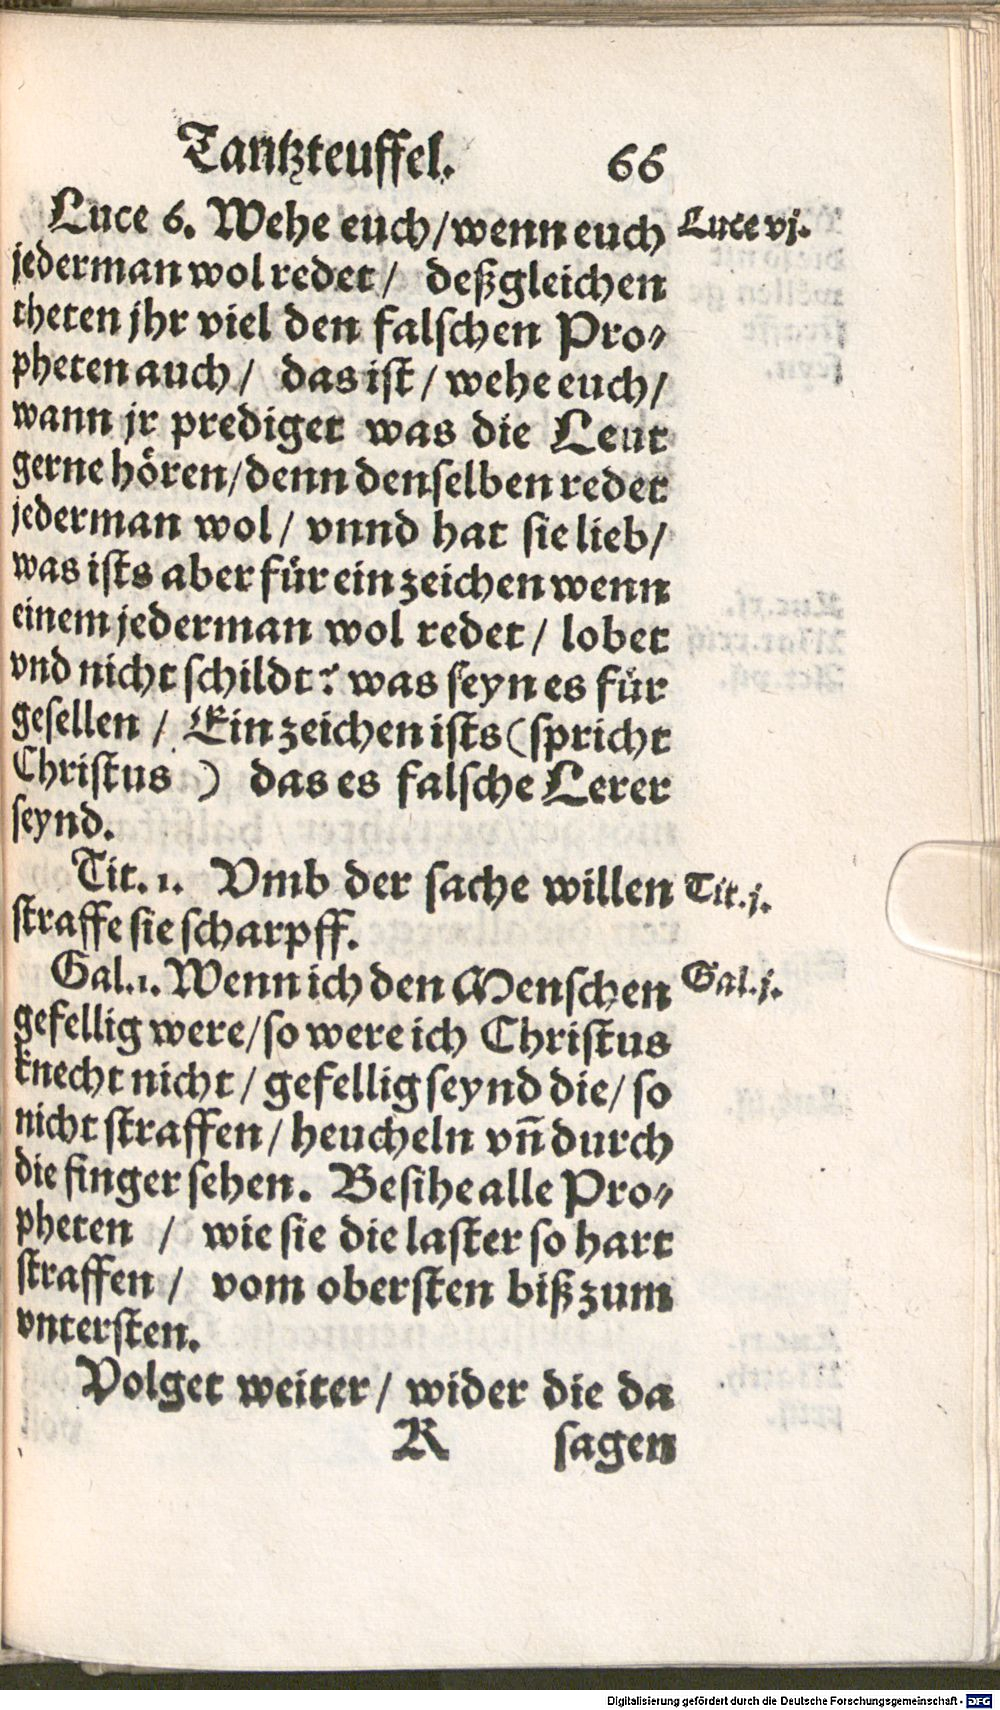 Tantzteuffel. 66
Luce 6. Wehe euch/wenn euch Luce vj.
jederman wol redet/ deßgleichen
theten jhr viel den falschen Pro-
pheten auch/ das ist/ wehe euch/
wann jr prediget was die Leut
gerne hören/denn denselben redet
jederman wol/ vnnd hat sie lieb/
was ists aber für ein zeichen wenn
einem jederman wol redet/ lobet
vnd nicht schildt? was seyn es für
gesellen/ Ein zeichen ists (spricht
Christus) das es falsche Lerer
seynd.
Tit. 1. Vmb der sache willen Tit. j.
straffe sie scharpff.
Gal. 1. Wenn ich den Menschen Gal. j.
gefellig were/so were ich Christus
knecht nicht/ gefellig seynd die/ so
nicht straffen/ heucheln vñ durch
die finger sehen. Besihe alle Pro-
pheten / wie sie die laster so hart
straffen/ vom obersten biß zum
vntersten.
Volget weiter/ wider die da
R sagen
Digitalisierung gefördert durch die Deutsche Forschungsgemeinschaft - DFG